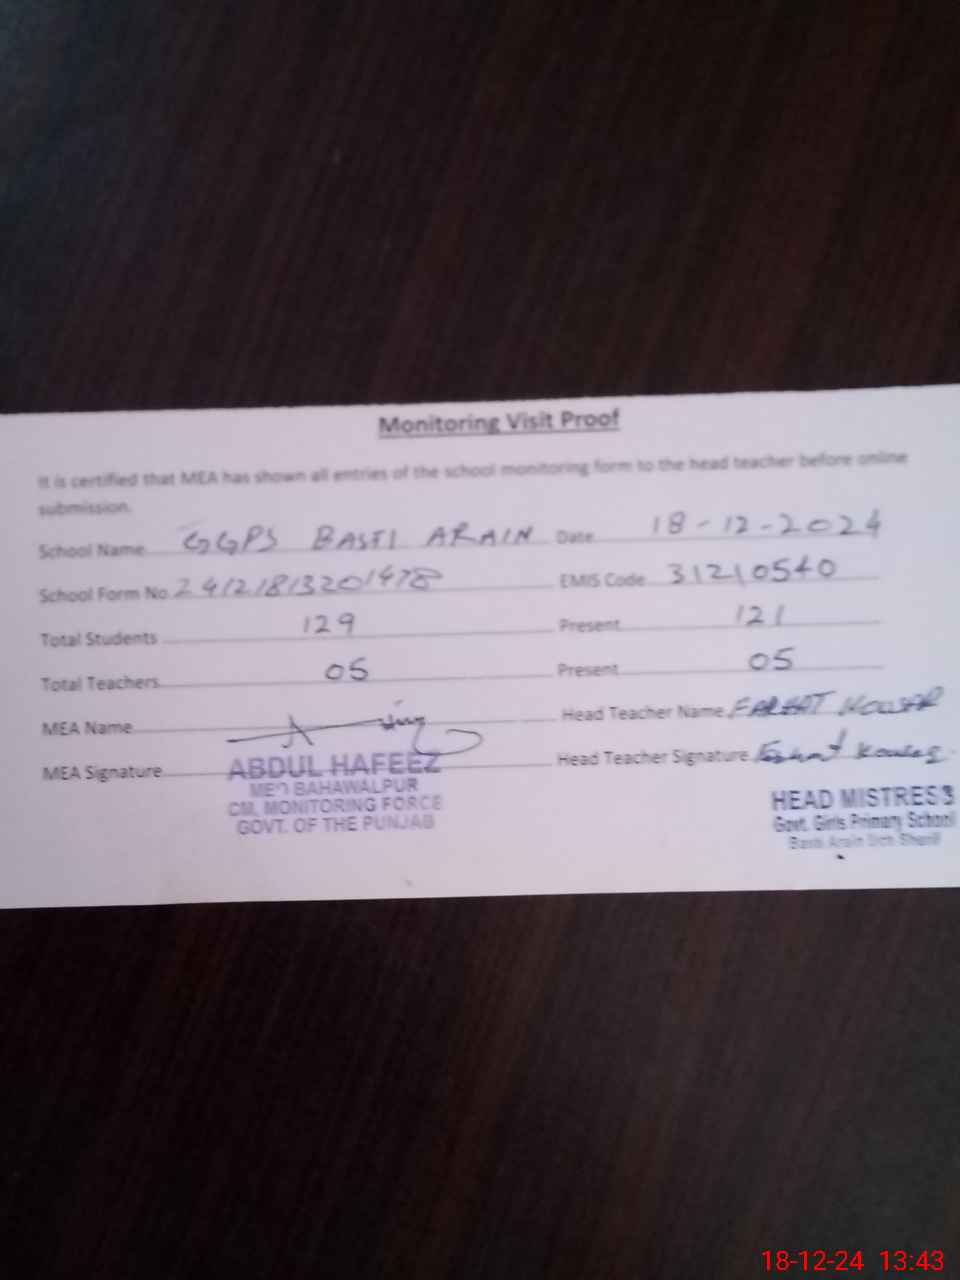 Monitoring Visit Proof
It is certified that MEA has shown all entries of the school monitoring form to the head teacher before online
submission.
School Name GGPS BASTI ARAIN Date 18-12-2024
School Form No. 24121813201478 EMIS Code 31210540
Total Students 129 Present 121
Total Teachers 05 Present 05
MEA Name Head Teacher Name FARHAT KOUSAR
MEA Signature Head Teacher Signature Farhat Kousar
ABDUL HAFEEZ
MEO BAHAWALPUR
CM, MONITORING FORCE
GOVT. OF THE PUNJAB
HEAD MISTRESS
Govt. Girls Primary School
Basti Arain Uch Sharif
18-12-24 13:43